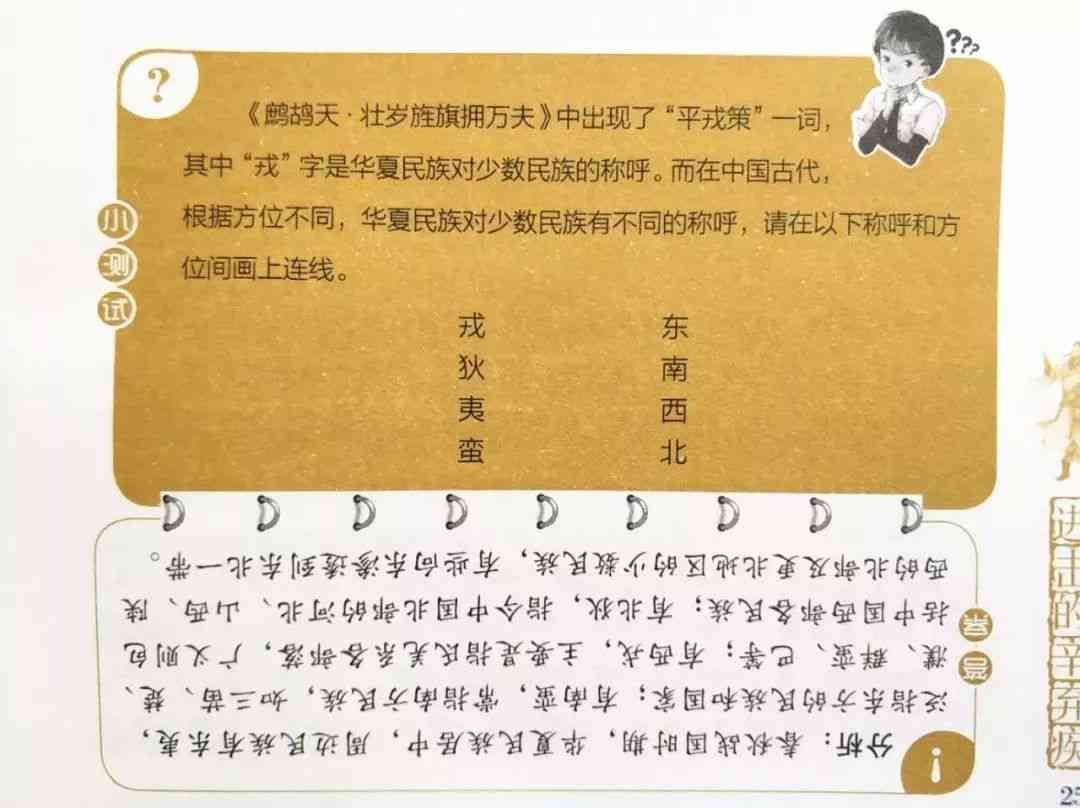 ?
???
《鹧鸪天·壮岁旌旗拥万夫》中出现了“平戎策”一词，
其中“戎”字是华夏民族对少数民族的称呼。而在中国古代，
根据方位不同，华夏民族对少数民族有不同的称呼，请在以下称呼和方
位间画上连线。
小测试
戎 东
狄 南
夷 西
蛮 北
分析：春秋战国时期，华夏民族居中，周边民族有东夷，
泛指东方的民族和国家；有南蛮，常指南方民族，如三苗、楚、
濮、群蛮、巴等；有西戎，主要是指氐羌系各部落，广义则包
括中国西部各民族；有北狄，指今中国北部的河北、山西、陕
西的北部及更北地区的少数民族，有些向东渗透到东北一带。
进击的辛弃疾